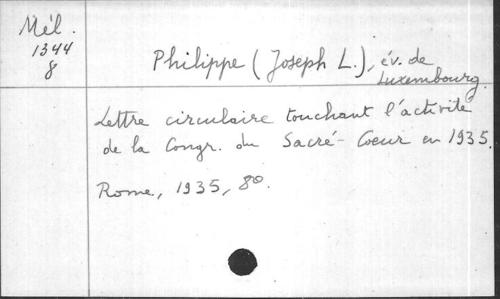 Mél.
1344
8
Philippe (Joseph L.), év. de
Luxembourg.
Lettre circulaire touchant l'activité
de la Congr. du Sacré-Coeur en 1935.
Rome, 1935, 8º.